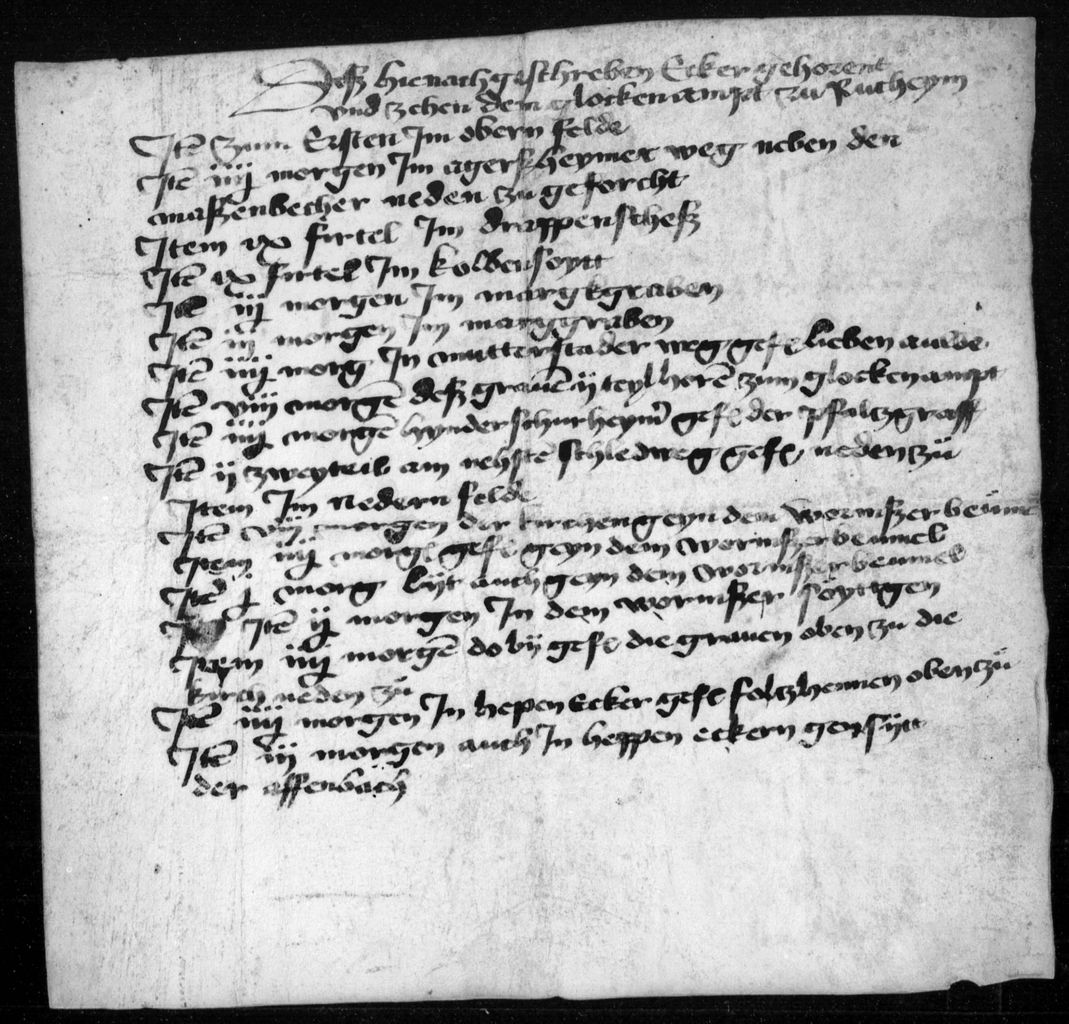 Deß hienach geschreben Ecker gehorent
vnd zehen dem glocken ampt zu Rucheym
Itē zum Ersten Im obern felde
Itē iiij morgen Im agerßheymer weg neben den
maßenbecher neden zu geforcht
Item ix firtel Im drappenscheß
Itē ix firtel Im kolbensoytt
Itē iij morgen Im margkgraben
Itē iij morgen Im marggraben
Itē iiij morg In mutterstader weg gefᵉ lieben auwe
Itē viij morgē deß grauē ij teyl herē zum glocken ampt
Itē iiij morgē hynder schurheym gefᵉ der Pfaltzgraff
Itē ij zweyteil am nehstē schledweg gefᵉ neden zü
Item Im nedern felde
Itē vij morgen der kirchen geyn dem wormßer beüme
Item iiij morgᵉ gefᵉ geyn dem wormßer beumel
Itē j morg lijt auch geyn dem wormßer beumel
Itē ij morgen In dem wormßer soyttgen
Item iiij morgē do bij gefᵉ die grauen oben zu die
kirch neden zü
Itē iiij morgen In hepen Ecker gefᵉ foltzhennen oben zü
Itē iij morgen auch In heppen eckern gensijtt
der affenbach